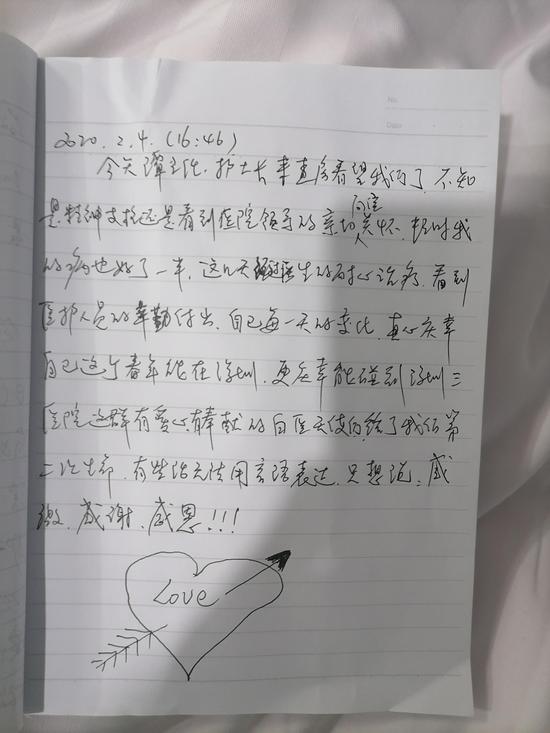 No.
Date
2020.2.4.(16:46)
今天谭主任、护士长来查房看望我们了,不知
是精神支撑还是看到医院领导的亲切关怀,顿时我
的病也好了一半,这几天经过医生的耐心治疗,看到
医护人员的辛勤付出,自己每一天的变化,真心庆幸
自己这个春年能在深圳,更庆幸能碰到深圳三
医院这群有爱心有奉献的白医天使们给了我们第
二次生命,有些话无法用言语表达,只想说:感
激、感谢、感恩!!!
Love